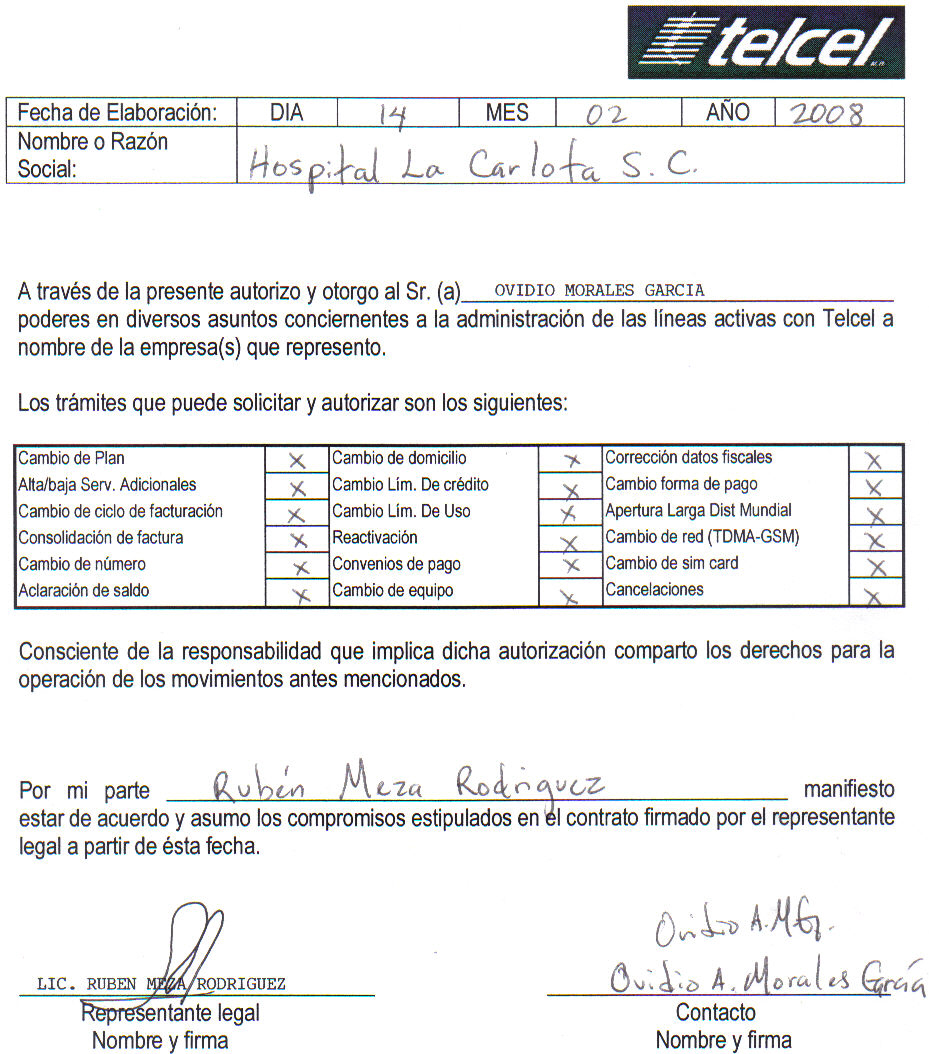 telcel
Fecha de Elaboración: DIA 14 MES 02 AÑO 2008
Nombre o Razón Social: Hospital La Carlota S. C.
A través de la presente autorizo y otorgo al Sr. (a) OVIDIO MORALES GARCIA
poderes en diversos asuntos conciernentes a la administración de las líneas activas con Telcel a
nombre de la empresa(s) que represento.
Los trámites que puede solicitar y autorizar son los siguientes:
Cambio de Plan X Cambio de domicilio X Corrección datos fiscales X
Alta/baja Serv. Adicionales X Cambio Lím. De crédito X Cambio forma de pago X
Cambio de ciclo de facturación X Cambio Lím. De Uso X Apertura Larga Dist Mundial X
Consolidación de factura X Reactivación X Cambio de red (TDMA-GSM) X
Cambio de número X Convenios de pago X Cambio de sim card X
Aclaración de saldo X Cambio de equipo X Cancelaciones X
Consciente de la responsabilidad que implica dicha autorización comparto los derechos para la
operación de los movimientos antes mencionados.
Por mi parte Rubén Meza Rodriguez manifiesto
estar de acuerdo y asumo los compromisos estipulados en el contrato firmado por el representante
legal a partir de ésta fecha.
Ovidio A. M
LIC. RUBEN MEZA RODRIGUEZ Ovidio A. Morales García
Representante legal Contacto
Nombre y firma Nombre y firma